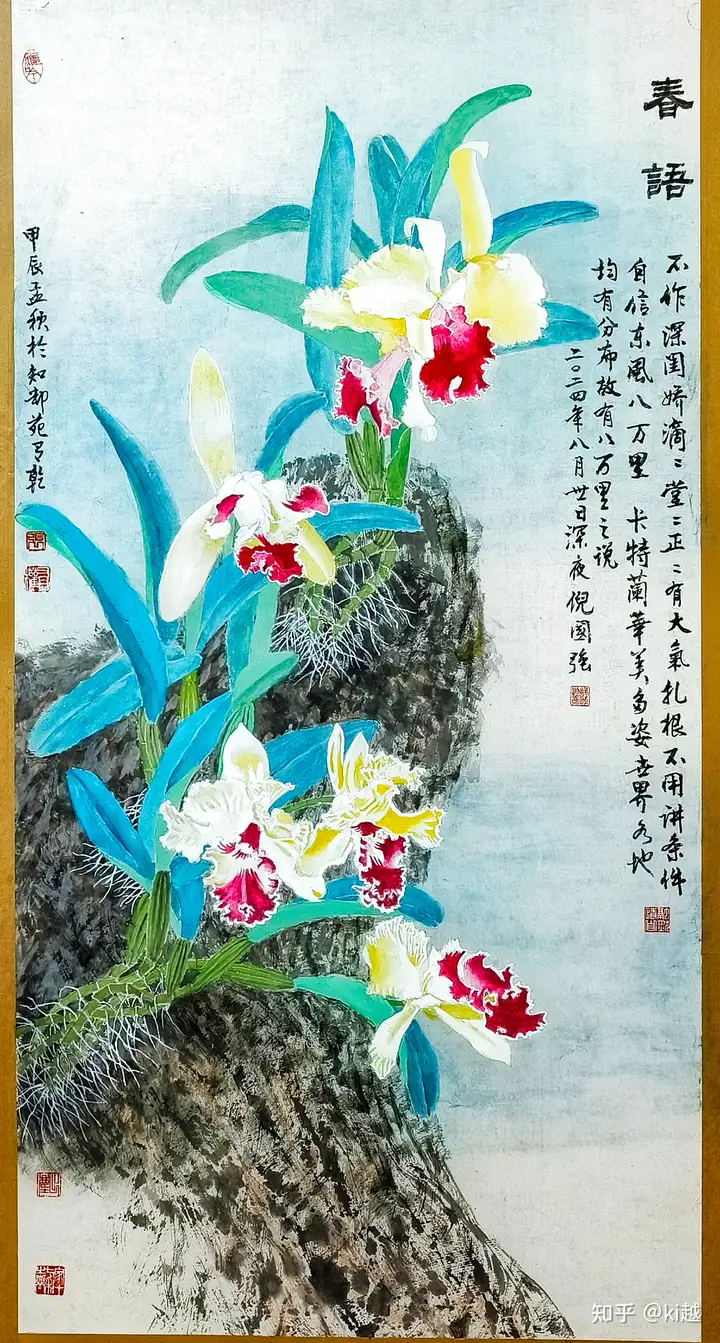 春語
不作深闺娇滴〻堂〻正〻有大氣扎根不用讲条件
自信东風八万里 卡特蘭華美多姿世界各地
均有分布故有八万里之说
二〇二四年八月卅日深夜倪國強
甲辰孟秋於知 苑 乾
知乎 @ki越